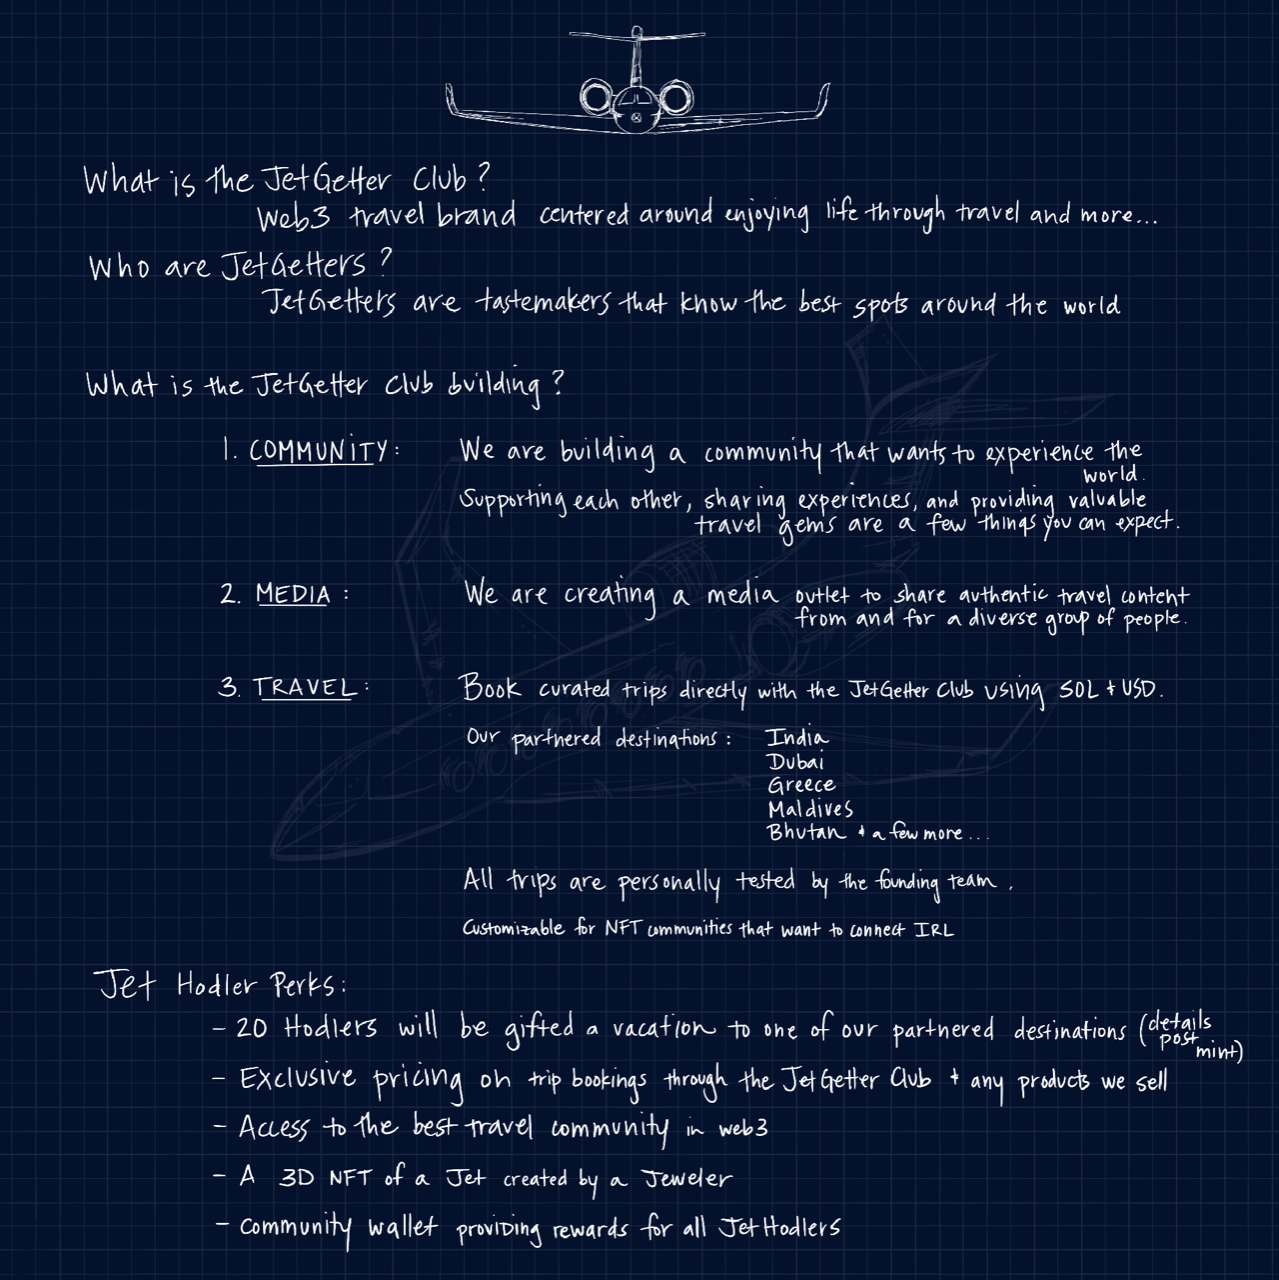 What is the JetGetter Club?
Web3 travel brand centered around enjoying life through travel and more...
Who are JetGetters?
JetGetters are tastemakers that know the best spots around the world
What is the JetGetter Club building?
1. COMMUNITY: We are building a community that wants to experience the
world.
Supporting each other, sharing experiences, and providing valuable
travel gems are a few things you can expect.
2. MEDIA: We are creating a media outlet to share authentic travel content
from and for a diverse group of people.
3. TRAVEL: Book curated trips directly with the JetGetter Club using SOL + USD.
Our partnered destinations: India
Dubai
Greece
Maldives
Bhutan + a few more...
All trips are personally tested by the founding team.
Customizable for NFT communities that want to connect IRL
Jet Hodler Perks:
- 20 Hodlers will be gifted a vacation to one of our partnered destinations (details
post
mint)
- Exclusive pricing on trip bookings through the JetGetter Club + any products we sell
- Access to the best travel community in web3
- A 3D NFT of a Jet created by a Jeweler
- Community wallet providing rewards for all JetHodlers